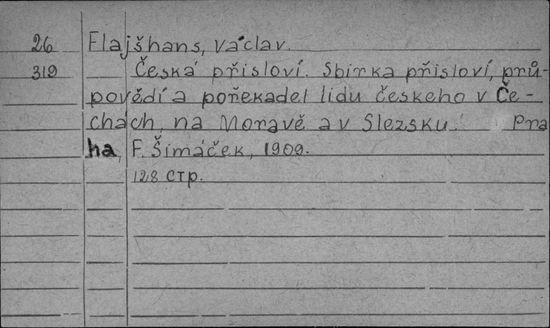 26 Flajšhans, Václav.
319 Česká přísloví. Sbírka přísloví, prů-
povědí a pořekadel lidu českeho v Če-
chách, na Moravě a v Slezsku. Pra
ha, F. Šimáček, 1909.
128 стр.